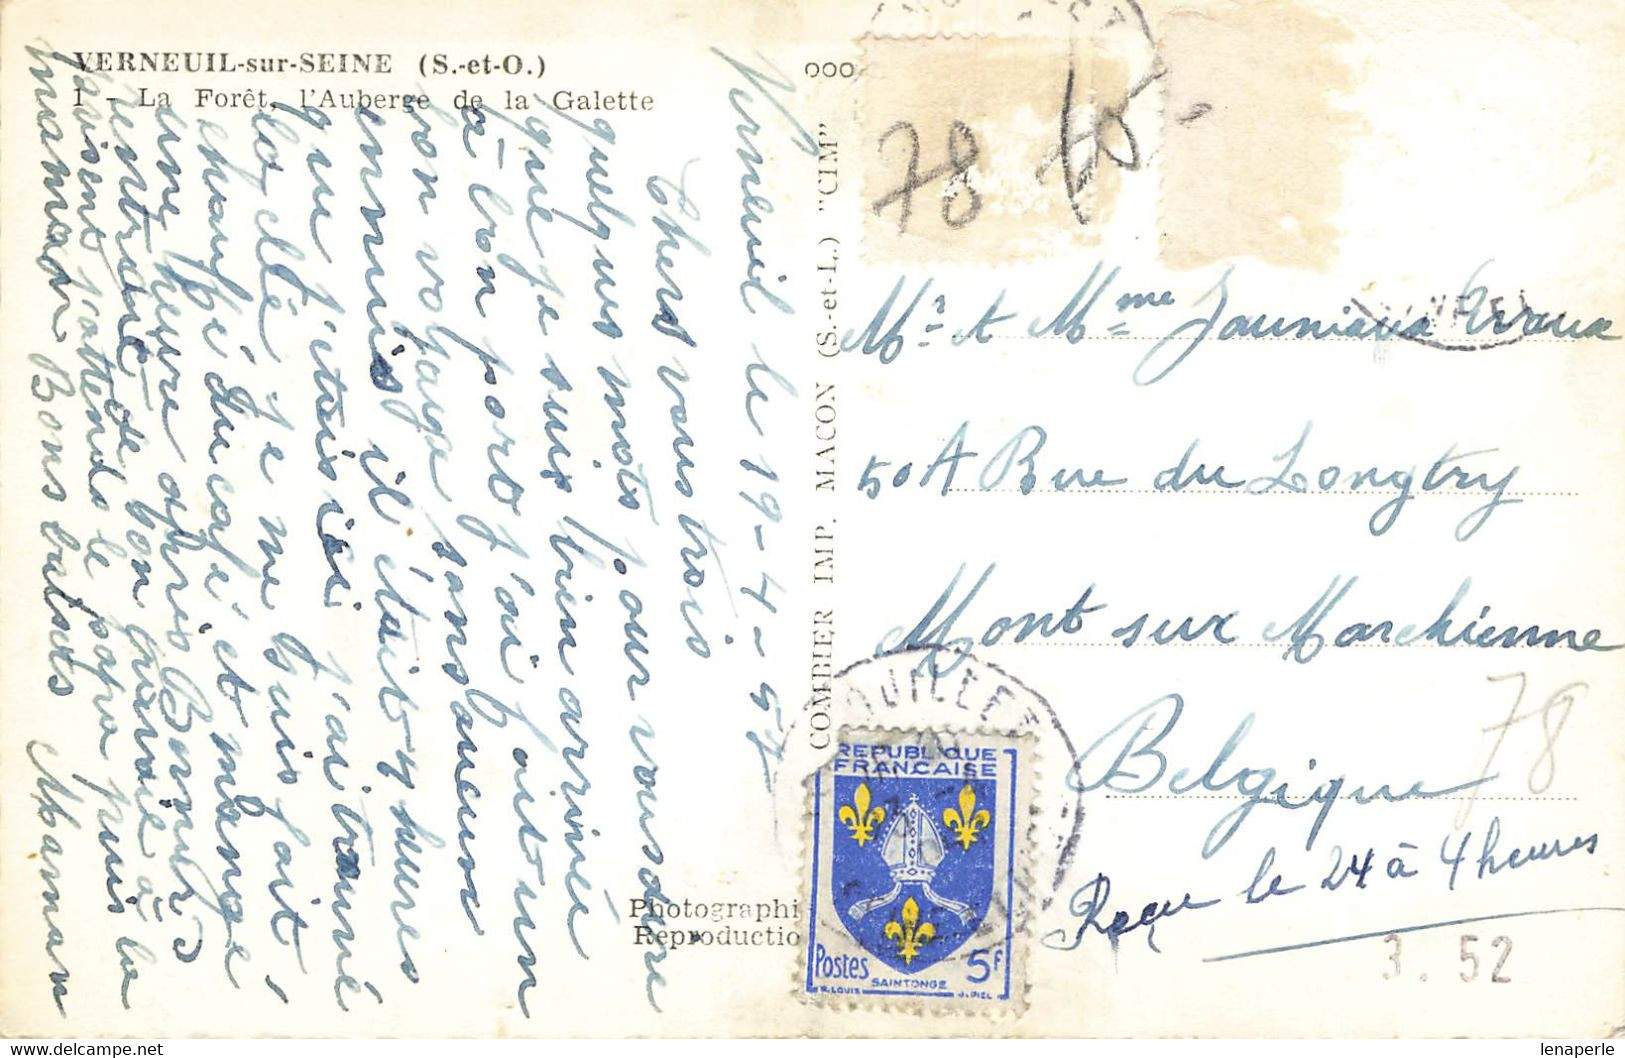 VERNEUIL-sur-SEINE (S.-et-O.)
1 - La Forêt, l'Auberge de la Galette
Verneuil le 19-4-57
Chers vous trois
quelques mots pour vous dire
que je suis bien arrivée
à bon port j'ai fait un
bon voyage sans aucun
ennuis il était 4 heures
que j'étais ici j'ai trouvé
la clé je me suis fait
chauffé du café et mangé
une heure après
rentrait de bon
j'attends le papa puis la
maman Bons baisers Maman
COMBIER IMP. MACON (S.-et-L.) "CIM"
Photographi
Reproductio
000
78 60 -
Mr et Mme Jauniaux Evraux
50 A Rue du Longtry
Mont sur Marchienne
Belgique
78
Reçu le 24 à 4 heures
3. 52
REPUBLIQUE
FRANCAISE
POSTES
SAINTONGE
5F
R. LOUIS
J. PIEL
lenaperle